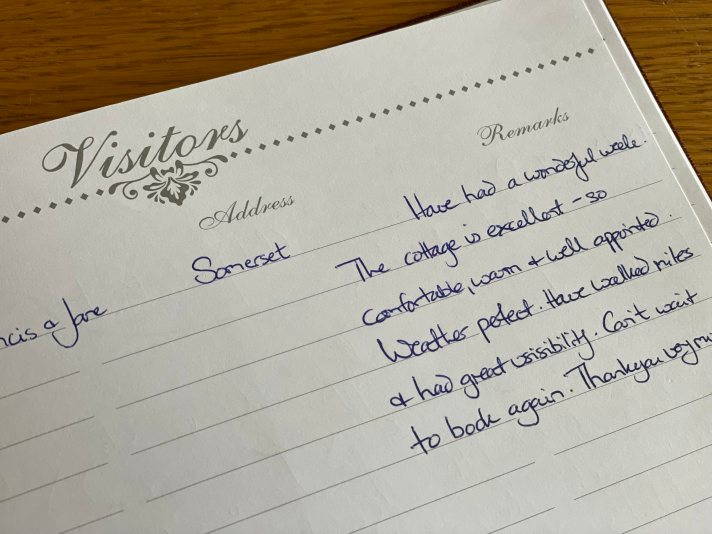 Visitors
Address
Remarks
ncis & Jane
Somerset
Have had a wonderful week.
The cottage is excellent - so
comfortable, warm & well appointed.
Weather perfect. Have walked miles
& had great visibility. Can't wait
to book again. Thankyou very mu